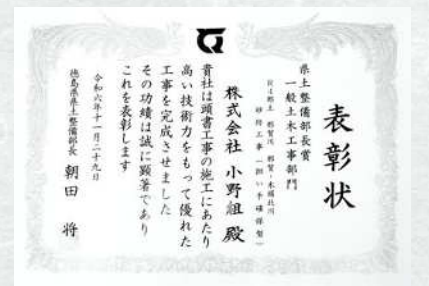 表彰状
県土整備部長賞
一般土木工事部門
砂防工事（担い手確保型）
株式会社 小野組 殿
貴社は頭書工事の施工にあたり
高い技術力をもって優れた
工事を完成させました
その功績は誠に顕著であり
これを表彰します
令和六年十一月二十九日
徳島県県土整備部長 朝田 将